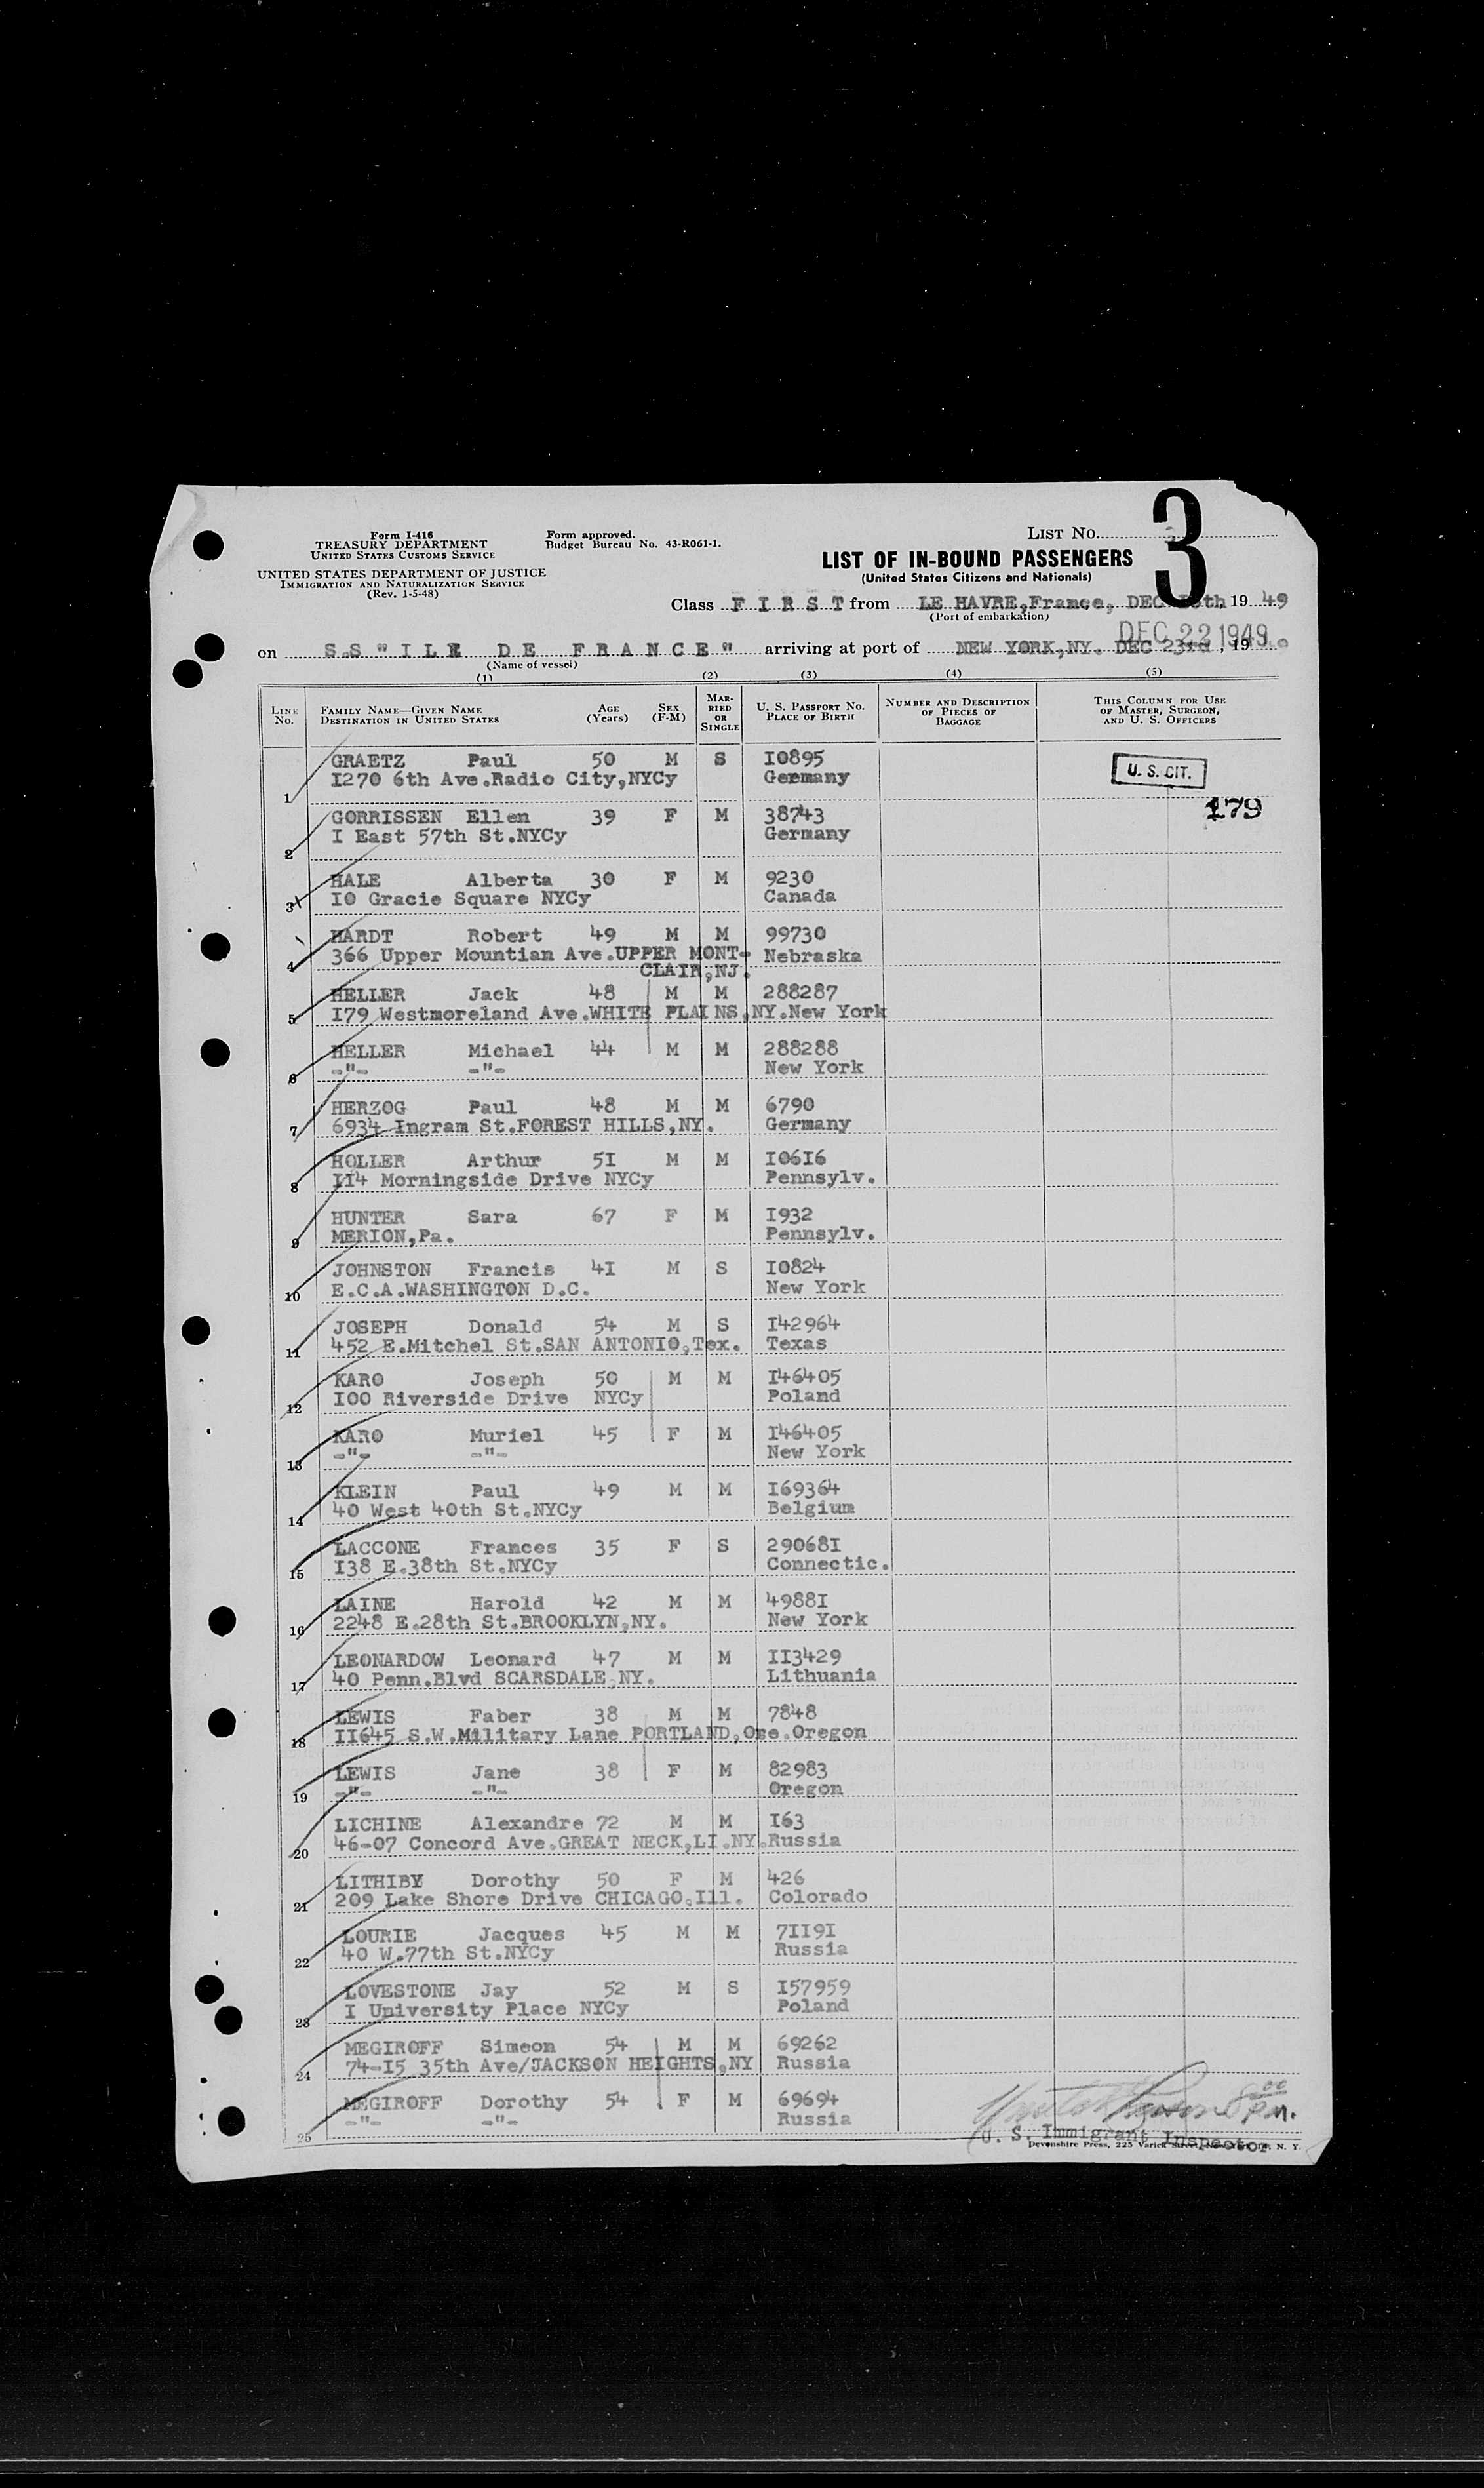 Form I-416
TREASURY DEPARTMENT
UNITED STATES CUSTOMS SERVICE
UNITED STATES DEPARTMENT OF JUSTICE
IMMIGRATION AND NATURALIZATION SERVICE
(Rev. 1-5-48)
Form approved.
Budget Bureau No. 43-R061-1.
LIST No. 3
LIST OF IN-BOUND PASSENGERS
(United States Citizens and Nationals)
Class F I R S T from LE HAVRE,France, DEC 19 49
(Port of embarkation)
DEC 22 1949
on S.S "ILE DE FRANCE" arriving at port of NEW YORK,NY. DEC 23rd, 19
(Name of vessel)
(1) (2) (3) (4) (5)
LINE No. FAMILY NAME—GIVEN NAME DESTINATION IN UNITED STATES AGE (Years) SEX (F-M) MARRIED OR SINGLE U. S. PASSPORT No. PLACE OF BIRTH NUMBER AND DESCRIPTION OF PIECES OF BAGGAGE THIS COLUMN FOR USE OF MASTER, SURGEON, AND U. S. OFFICERS
GRAETZ Paul 50 M S I0895 U. S. CIT.
1 I270 6th Ave.Radio City,NYCy Germany
GORRISSEN Ellen 39 F M 38743 179
2 I East 57th St.NYCy Germany
HALE Alberta 30 F M 9230
3 I0 Gracie Square NYCy Canada
HARDT Robert 49 M M 99730
4 366 Upper Mountian Ave.UPPER MONT- Nebraska
CLAIR,NJ.
HELLER Jack 48 M M 288287
5 I79 Westmoreland Ave.WHITE PLAINS,NY.New York
HELLER Michael 44 M M 288288
6 -"- -"- New York
HERZOG Paul 48 M M 6790
7 6934 Ingram St.FOREST HILLS,NY. Germany
HOLLER Arthur 5I M M I06I6
8 II4 Morningside Drive NYCy Pennsylv.
HUNTER Sara 67 F M I932
9 MERION,Pa. Pennsylv.
JOHNSTON Francis 4I M S I0824
10 E.C.A.WASHINGTON D.C. New York
JOSEPH Donald 54 M S I42964
11 452 E.Mitchel St.SAN ANTONIO,Tex. Texas
KARO Joseph 50 M M I46405
12 I00 Riverside Drive NYCy Poland
KARO Muriel 45 F M I46405
13 -"- -"- New York
KLEIN Paul 49 M M I69364
14 40 West 40th St.NYCy Belgium
LACCONE Frances 35 F S 29068I
15 I38 E.38th St.NYCy Connectic.
LAINE Harold 42 M M 4988I
16 2248 E.28th St.BROOKLYN,NY. New York
LEONARDOW Leonard 47 M M II3429
17 40 Penn.Blvd SCARSDALE,NY. Lithuania
LEWIS Faber 38 M M 7848
18 II645 S.W.Military Lane PORTLAND,Ore.Oregon
LEWIS Jane 38 F M 82983
19 -"- -"- Oregon
LICHINE Alexandre 72 M M I63
20 46-07 Concord Ave.GREAT NECK,LI.NY.Russia
LITHIBY Dorothy 50 F M 426
21 209 Lake Shore Drive CHICAGO,Ill. Colorado
LOURIE Jacques 45 M M 7II9I
22 40 W.77th St.NYCy Russia
LOVESTONE Jay 52 M S I57959
23 I University Place NYCy Poland
MEGIROFF Simeon 54 M M 69262
24 74-I5 35th Ave/JACKSON HEIGHTS,NY Russia
MEGIROFF Dorothy 54 F M 69694
25 -"- -"- Russia
8 00 P.M.
U. S. Immigrant Inspector
Devonshire Press, 225 Varick N. Y.